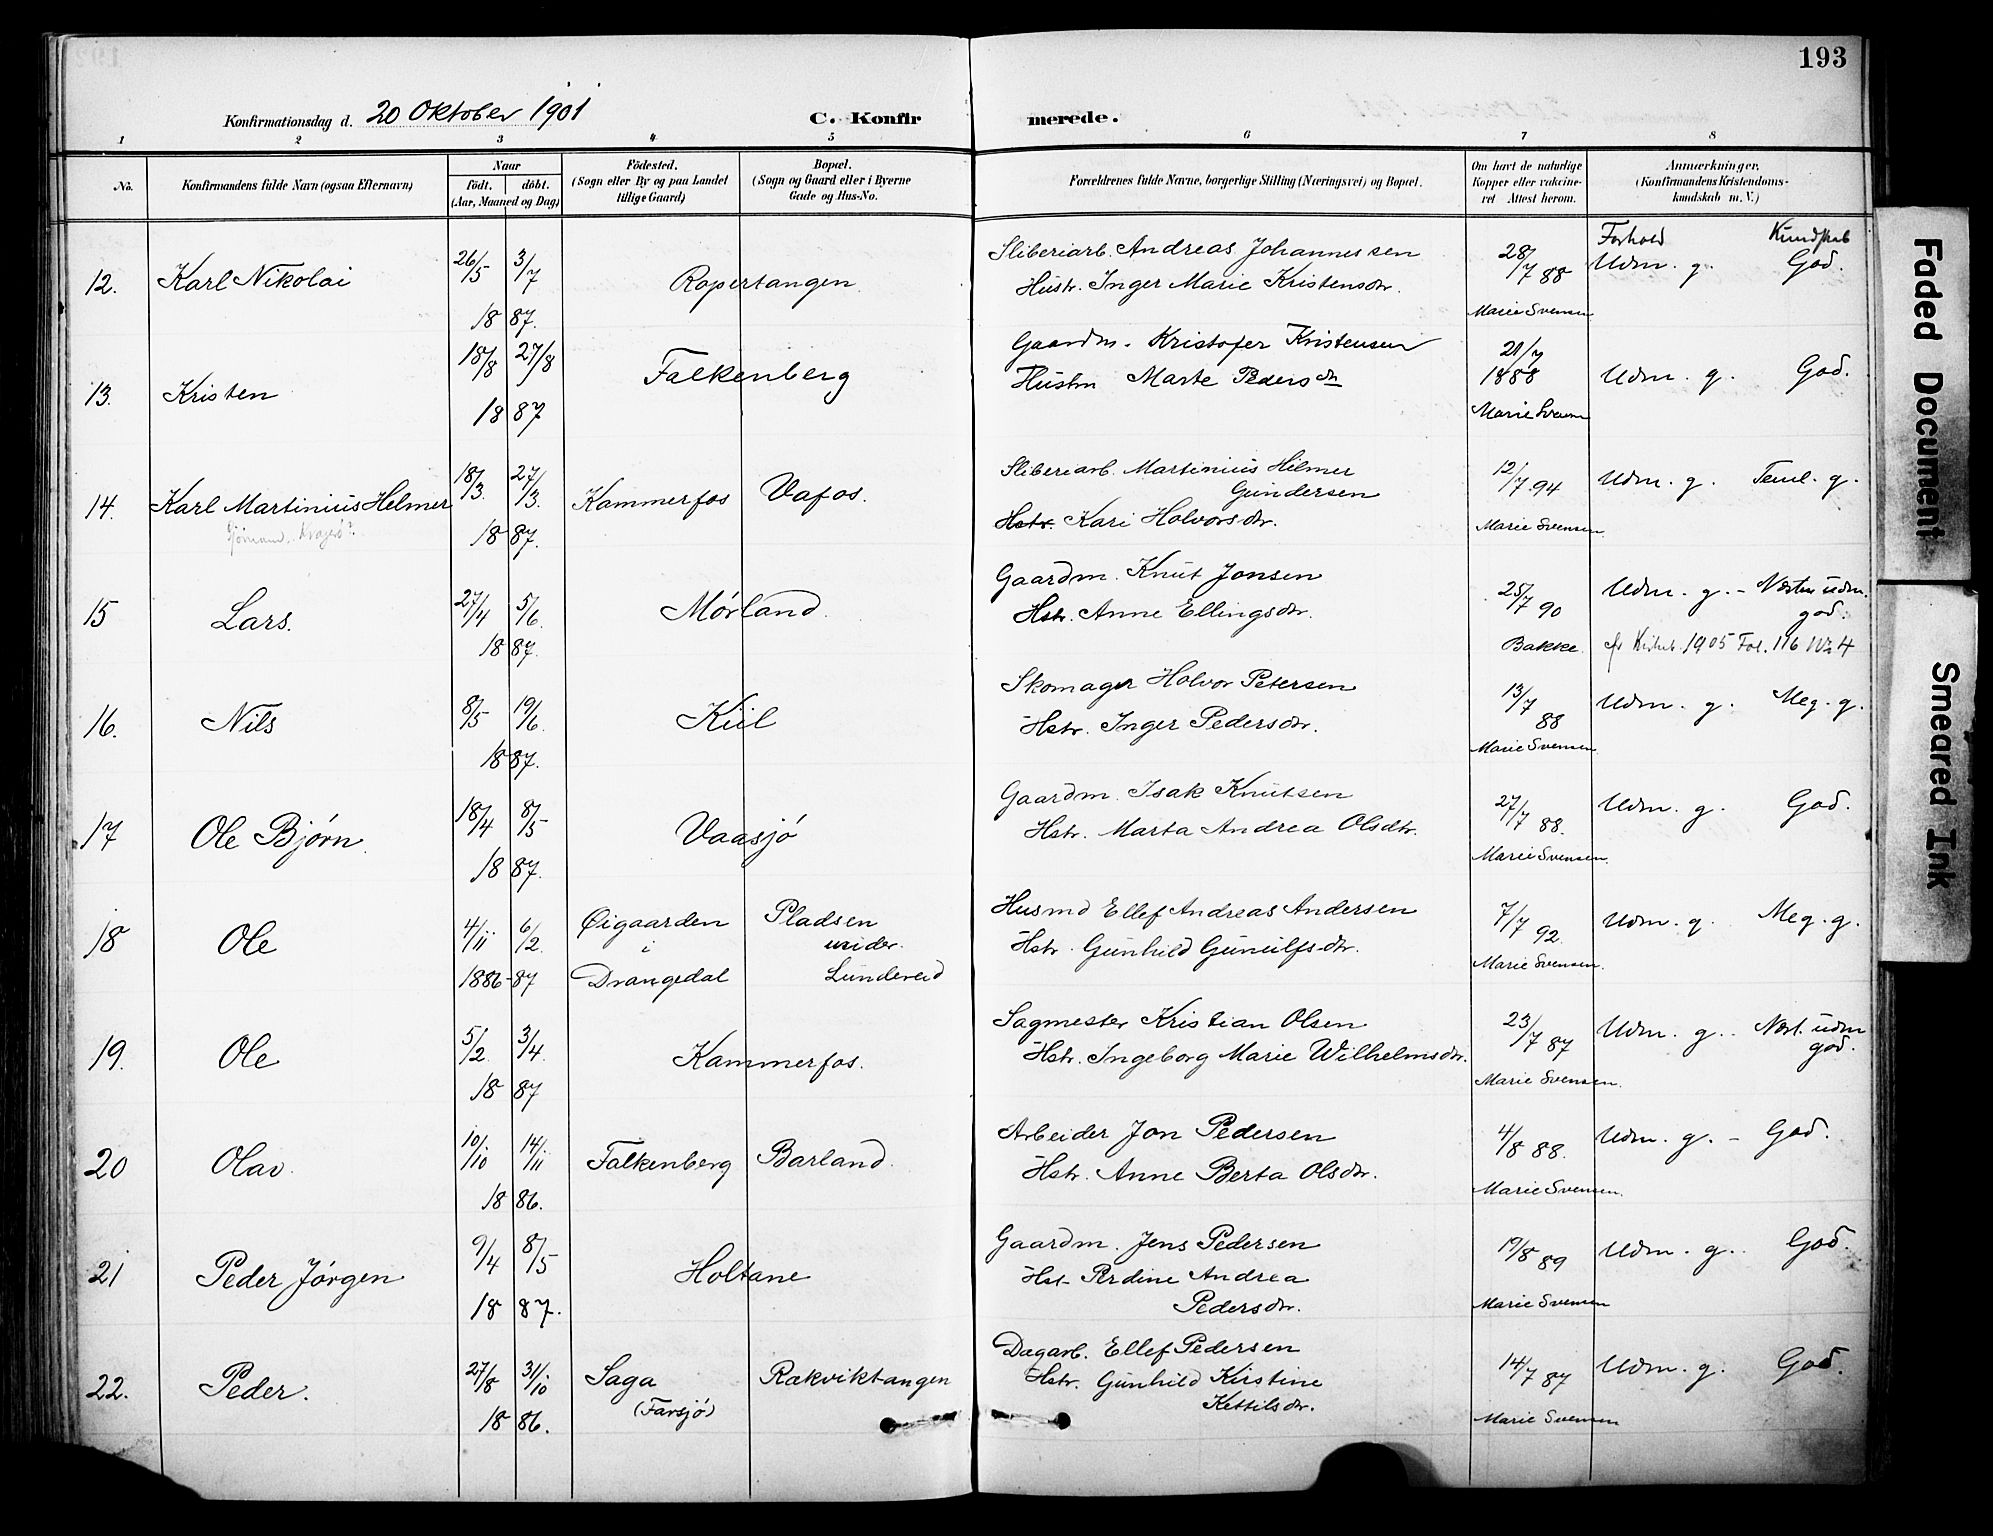 193
Konfirmationsdag d. 20 Oktober 1901
C. Konfirmerede.
1 2 3 4 5 6 7 8
No.
Konfirmandens fulde Navn (ogsaa Efternavn)
Naar
födt. döbt.
(Aar, Maaned og Dag)
Födested.
(Sogn eller By og paa Landet
tillige Gaard)
Bopæl.
(Sogn og Gaard eller i Byerne
Gade og Hus-No.
Forældrenes fulde Navne, borgerlige Stilling (Næringsvei) og Bopæl.
Om havt de naturlige
Kopper eller vakcine-
ret Attest herom.
Anmærkninger,
(Konfirmandens Kristendoms-
kundskab m. V.)
Forhold Kundskab
12. Karl Nikolai 26/5 3/7 1887. Ropertangen.
Sliberiarb. Andreas Johannessen
Hustr. Inger Marie Kristensdtr.
28/7 88 Marie Svensen
Udm. g. God.
13. Kristen 18/8 27/8 1887 Falkenberg
Gaardm. Kristofer Kristensen
Hustru Marte Pedersdtr
21/7 1888 Marie Svensen
Udm. g. God.
14. Karl Martinius Helmer 18/3. 27/3. 1887. Kammerfos Vafos.
Sliberiarb. Martinius Hilmer
Gundersen
Hstr. Kari Halvorsdtr.
12/7.94 Marie Svensen.
Udm. g. Teml. g.
15 Lars. 27/4 5/6. 1887. Mørland.
Gaardm. Knut Jonsen
Hstr. Anne Ellingsdtr.
25/7 90 Bakke.
Udm. g. - Næsten udm.
god.
1905 Fol. 116 No 4
16. Nils 8/5 19/6. 1887. Kiil
Skomager Halvor Petersen
Hstr. Inger Pedersdtr.
13/7 88 Marie Svensen.
Udm. g. Meg. g.
17 Ole Bjørn. 18/4 8/5 1887. Vaasjø
Gaardm. Isak Knutsen
Hstr. Marta Andrea Olsdtr.
27/7 88. Marie Svensen.
Udm. g. God.
18 Ole 4/11 6/2. 1886-87 Øigaarden
i
Drangedal
Pladsen
under.
Lundereid
Husmd Ellef Andreas Andersen
Hstr. Gunhild Gunulfs-dtr.
7/7 92. Marie Svensen.
Udm. g. Meg. g.
19. Ole 5/2. 3/4. 1887 Kammerfos.
Sagmester Kristian Olsen
Hstr. Ingeborg Marie Wilhelmsdtr.
23/7 87 Marie Svensen.
Udm. g. Næst. udm
god.
20 Olav. 10/10 14/11 1886. Falkenberg Barland.
Arbeider Jon Pedersen
Hstr. Anne Berta Olsdtr.
4/8 88. Marie Svensen.
Udm. g. - God.
21 Peder Jørgen 9/4 8/5 1887. Holtane
Gaardm. Jens Pedersen
Hst. Perdine Andrea
Pedersdtr.
19/8 89 Marie Svensen
Udm. g. God.
22. Peder. 27/8 31/10 1886. Saga
(Farsjø)
Rækviktangen
Dagarb. Ellef Pedersen
Hstr. Gunhild Kirstine
Kettilsdtr.
14/7 87 Marie Svensen
Udm. g. God.
Faded Document
Smeared Ink